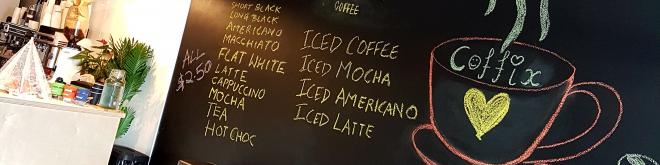 SHORT BLACK
LONG BLACK
AMERICANO
MACCHIATO
FLAT WHITE
LATTE
CAPPUCCINO
MOCHA
TEA
HOT CHOC
ALL
$2.50
COFFEE
ICED COFFEE
ICED MOCHA
ICED AMERICANO
ICED LATTE
Coffix